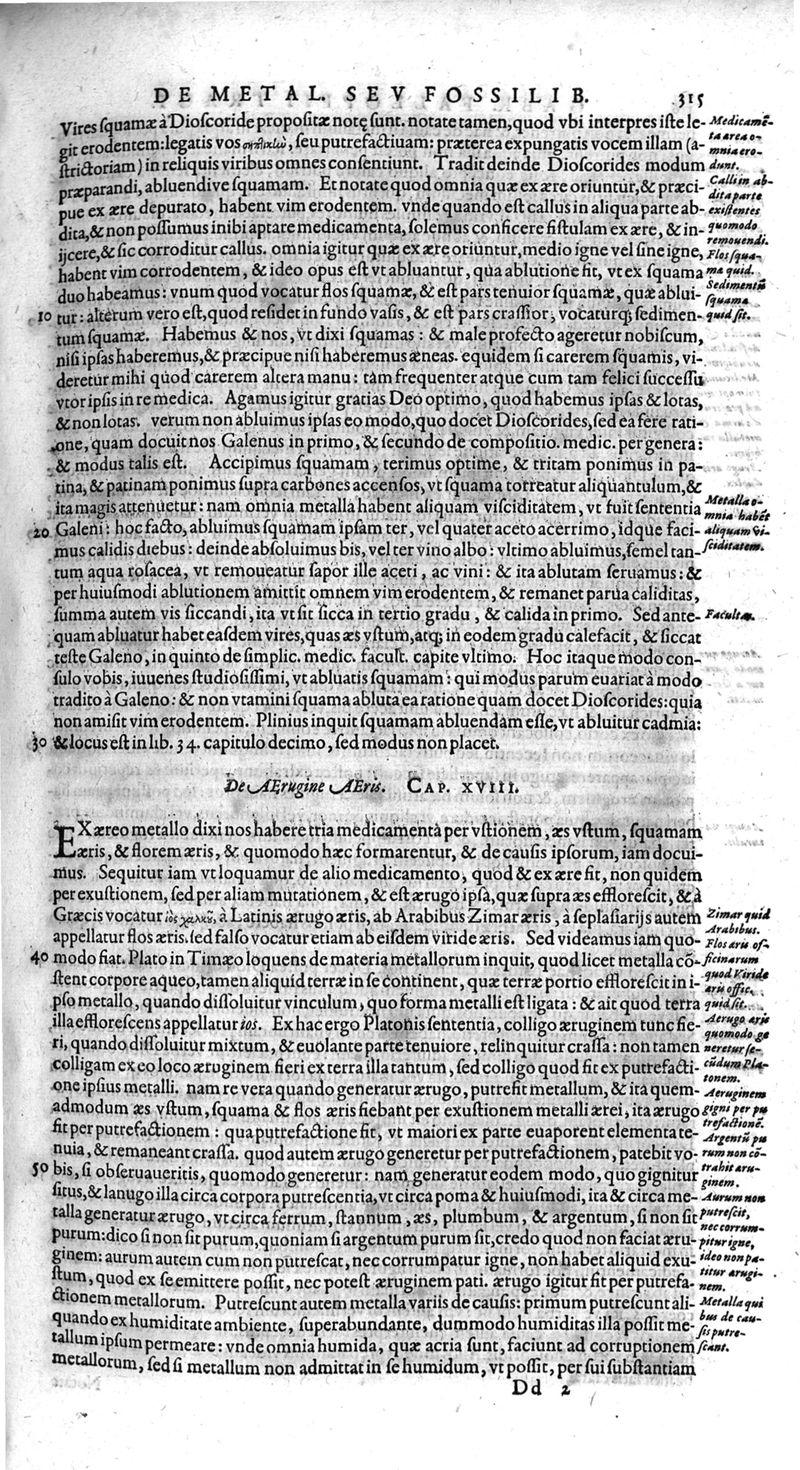 DE METAL. SEV FOSSILIB. 315
Vires squamæ à Dioscoride propositæ notę sunt. notate tamen, quod vbi interpres iste le-
git erodentem: legatis vos σηπτικὼ, seu putrefactiuam: præterea expungatis vocem illam (a-
strictoriam) in reliquis viribus omnes consentiunt. Tradit deinde Dioscorides modum
præparandi, abluendive squamam. Et notate quod omnia quæ ex ære oriuntur, & præci-
pue ex ære depurato, habent vim erodentem. vnde quando est callus in aliqua parte ab-
dita, & non possumus inibi aptare medicamenta, solemus conficere fistulam ex ære, & in-
ijcere, & sic corroditur callus. omnia igitur quæ ex ære oriuntur, medio igne vel sine igne,
habent vim corrodentem, & ideo opus est vt abluantur, qua ablutione fit, vt ex squama
duo habeamus: vnum quod vocatur flos squamæ, & est pars tenuior squamæ, quæ ablui-
10 tur: alterum vero est, quod residet in fundo vasis, & est pars crassior, vocaturq; sedimen-
tum squamæ. Habemus & nos, vt dixi squamas: & male profecto ageretur nobiscum,
nisi ipsas haberemus, & præcipue nisi haberemus æneas. equidem si carerem squamis, vi-
deretur mihi quod carerem altera manu: tam frequenter atque cum tam felici successu
vtor ipsis in re medica. Agamus igitur gratias Deo optimo, quod habemus ipsas & lotas,
& non lotas. verum non abluimus ipsas eo modo, quo docet Dioscorides, sed ea fere rati-
one, quam docuit nos Galenus in primo, & secundo de compositio. medic. per genera:
& modus talis est. Accipimus squamam, terimus optime, & tritam ponimus in pa-
tina, & patinam ponimus supra carbones accensos, vt squama torreatur aliquantulum, &
ita magis attenuetur: nam omnia metalla habent aliquam visciditatem, vt fuit sententia
20 Galeni: hoc facto, abluimus squamam ipsam ter, vel quater aceto acerrimo, idque faci-
mus calidis diebus: deinde absoluimus bis, vel ter vino albo: vltimo abluimus, semel tan-
tum aqua rosacea, vt remoueatur sapor ille aceti, ac vini: & ita ablutam seruamus: &
per huiusmodi ablutionem amittit omnem vim erodentem, & remanet parua caliditas,
summa autem vis siccandi, ita vt sit sicca in tertio gradu, & calida in primo. Sed ante-
quam abluatur habet easdem vires, quas æs vstum, atq; in eodem gradu calefacit, & siccat
teste Galeno, in quinto de simplic. medic. facult. capite vltimo. Hoc itaque modo con-
sulo vobis, iuuenes studiosissimi, vt abluatis squamam: qui modus parum euariat à modo
tradito à Galeno: & non vtamini squama abluta ea ratione quam docet Dioscorides: quia
non amisit vim erodentem. Plinius inquit squamam abluendam esse, vt abluitur cadmia:
30 & locus est in lib. 34. capitulo decimo, sed modus non placet.
De AErugine AEris. CAP. XVIII.
EX æreo metallo dixi nos habere tria medicamenta per vstionem, æs vstum, squamam
æris, & florem æris, & quomodo hæc formarentur, & de causis ipsorum, iam docui-
mus. Sequitur iam vt loquamur de alio medicamento, quod & ex ære fit, non quidem
per exustionem, sed per aliam mutationem, & est ærugo ipsa, quæ supra æs efflorescit, & à
Græcis vocatur ἰὸς χαλκοῦ, à Latinis ærugo æris, ab Arabibus Zimar æris, à seplasiarijs autem
appellatur flos æris. sed falso vocatur etiam ab eisdem viride æris. Sed videamus iam quo-
40 modo fiat. Plato in Timæo loquens de materia metallorum inquit, quod licet metalla cō-
stent corpore aqueo, tamen aliquid terræ in se continent, quæ terræ portio efflorescit in i-
pso metallo, quando dissoluitur vinculum, quo forma metalli est ligata: & ait quod terra
illa efflorescens appellatur ios. Ex hac ergo Platonis sententia, colligo æruginem tunc fie-
ri, quando dissoluitur mixtum, & euolante parte tenuiore, relinquitur crassa: non tamen
colligam ex eo loco æruginem fieri ex terra illa tantum, sed colligo quod fit ex putrefacti-
one ipsius metalli. nam re vera quando generatur ærugo, putrefit metallum, & ita quem-
admodum æs vstum, squama & flos æris fiebant per exustionem metalli ærei, ita ærugo
fit per putrefactionem: qua putrefactione fit, vt maiori ex parte euaporent elementa te-
nuia, & remaneant crassa. quod autem ærugo generetur per putrefactionem, patebit vo-
50 bis, si obseruaueritis, quomodo generetur: nam generatur eodem modo, quo gignitur
situs, & lanugo illa circa corpora putrescentia, vt circa poma & huiusmodi, ita & circa me-
talla generatur ærugo, vt circa ferrum, stannum, æs, plumbum, & argentum, si non sit
purum: dico si non sit purum, quoniam si argentum purum sit, credo quod non faciat æru-
ginem: aurum autem cum non putrescat, nec corrumpatur igne, non habet aliquid exu-
stum, quod ex se emittere possit, nec potest æruginem pati. ærugo igitur fit per putrefa-
ctionem metallorum. Putrescunt autem metalla variis de causis: primum putrescunt ali-
quando ex humiditate ambiente, superabundante, dummodo humiditas illa possit me-
tallum ipsum permeare: vnde omnia humida, quæ acria sunt, faciunt ad corruptionem
metallorum, sed si metallum non admittat in se humidum, vt possit, per sui substantiam
Dd 2
Medicamē-
ta area o-
mnia ero-
dunt.
Calli in ab-
dita parte
existentes
quomodo
remouendi.
Flos squa-
ma quid.
Sedimentū
squama
quid sit.
Metalla o-
mnia habēt
aliquam vi-
sciditatem.
Facultas.
Zimar quid
Arabibus.
Flos æris of-
ficinarum
quod Viride
æris offic.
quid sit.
Aerugo æris
quomodo ge
neretur se-
cūdum Pla-
tonem.
Aeruginem
gigni per pu
trefactionē.
Argentū pu
rum non cō-
trahit æru-
ginem.
Aurum non
putrescit,
nec corrum-
pitur igne,
ideo non pa-
titur ærugi-
nem.
Metalla qui
bus de cau-
sis putre-
scant.